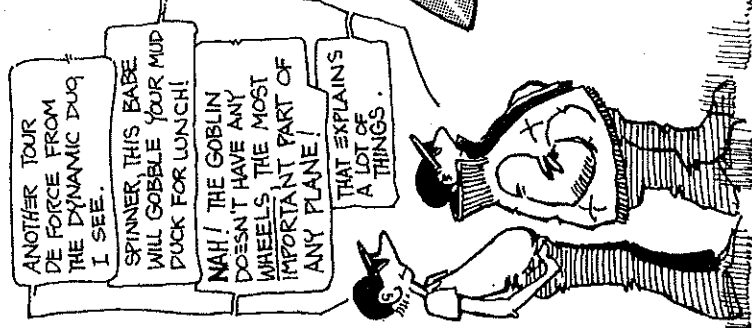 ANOTHER TOUR
DE FORCE FROM
THE DYNAMIC DUO
I SEE.
SPINNER, THIS BABE
WILL GOBBLE YOUR MUD
DUCK FOR LUNCH!
NAH! THE GOBLIN
DOESN'T HAVE ANY
WHEELS, THE MOST
IMPORTANT PART OF
ANY PLANE!
THAT EXPLAINS
A LOT OF
THINGS.